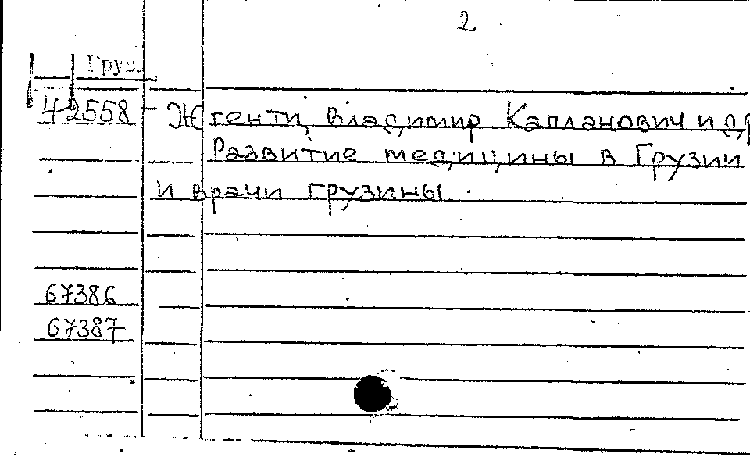 2
Груз.
42558 - Жгенти, Владимир Капланович и др
Развитие медицины в Грузии
и врачи грузины.
67386
67387